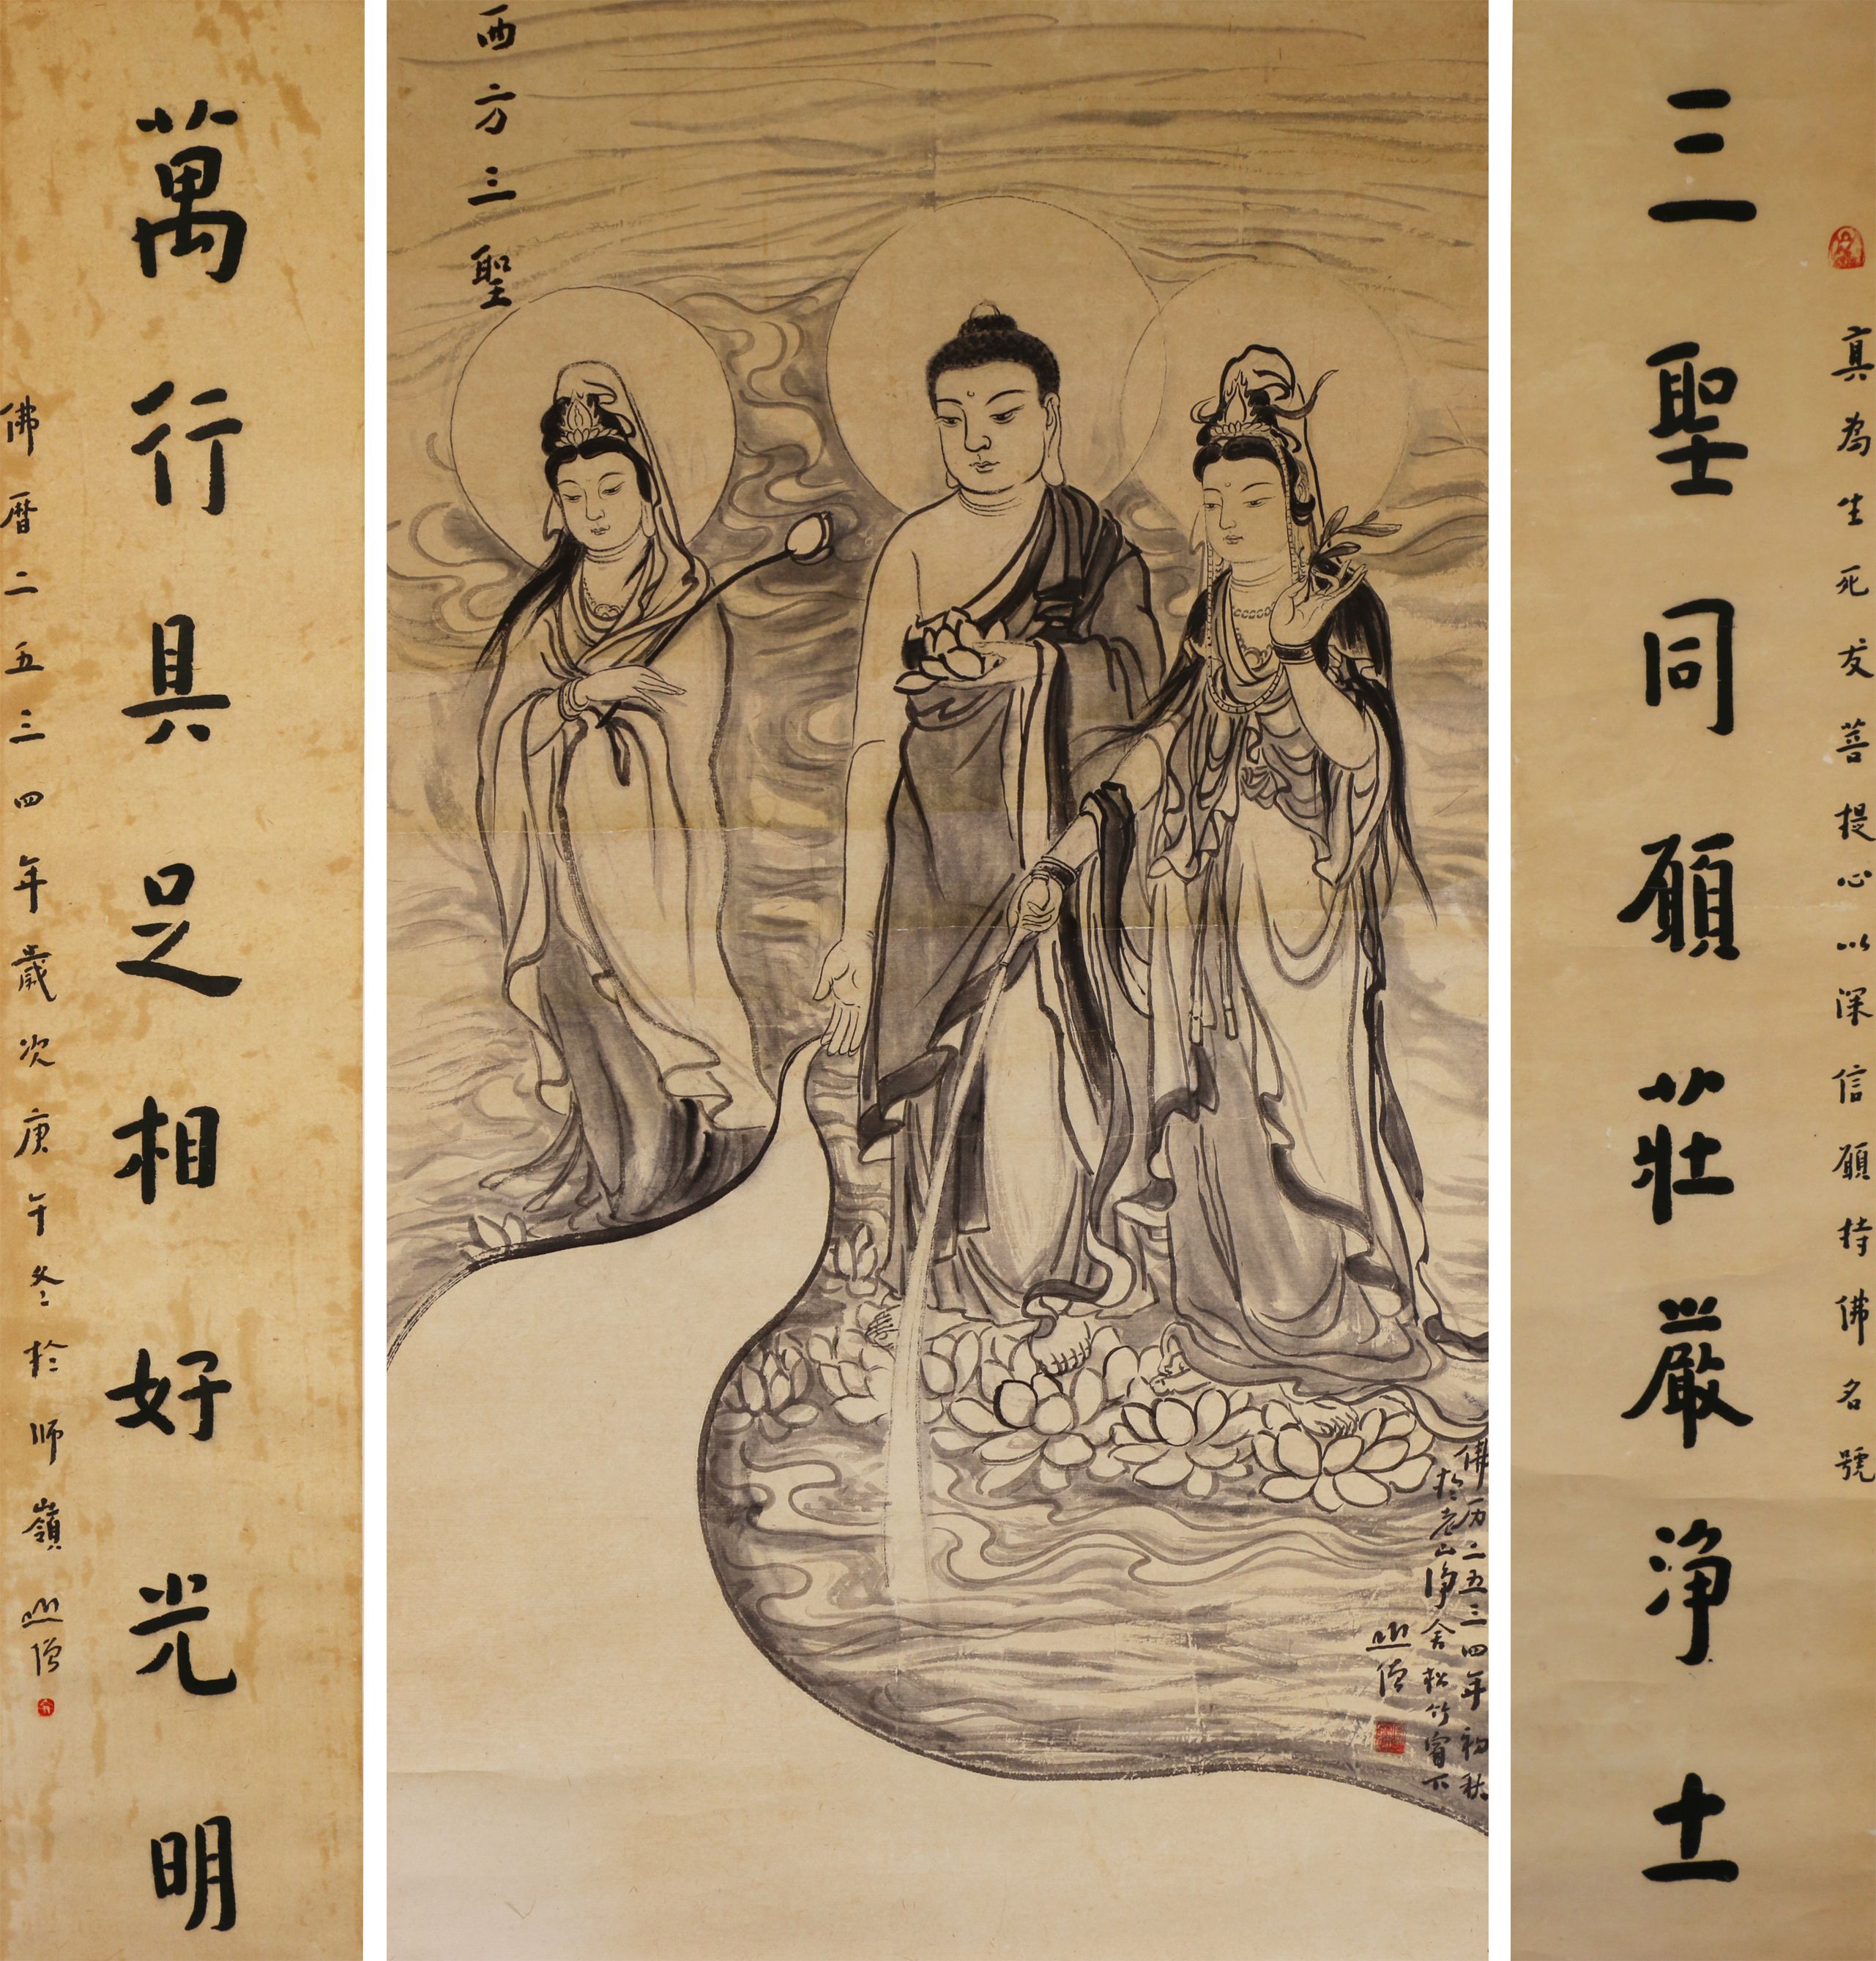 真為生死发菩提心以深信願持佛名號
三聖同願莊嚴淨土
西方三聖
佛历二五三四年初秋
於老山净舍松竹窗下
萬行具足相好光明
佛曆二五三四年歲次庚午冬於师嶺